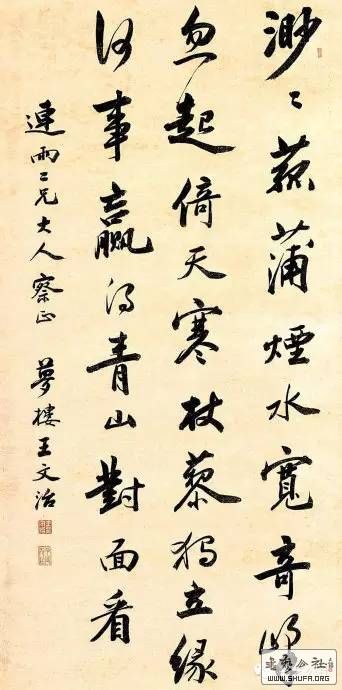 渺〻菰蒲煙水寬奇峰
忽起倚天寒杖藜獨立緣
何事贏得青山對面看
連雨二兄大人察正 夢樓王文治
書藝公社
WWW.SHUFA.ORG